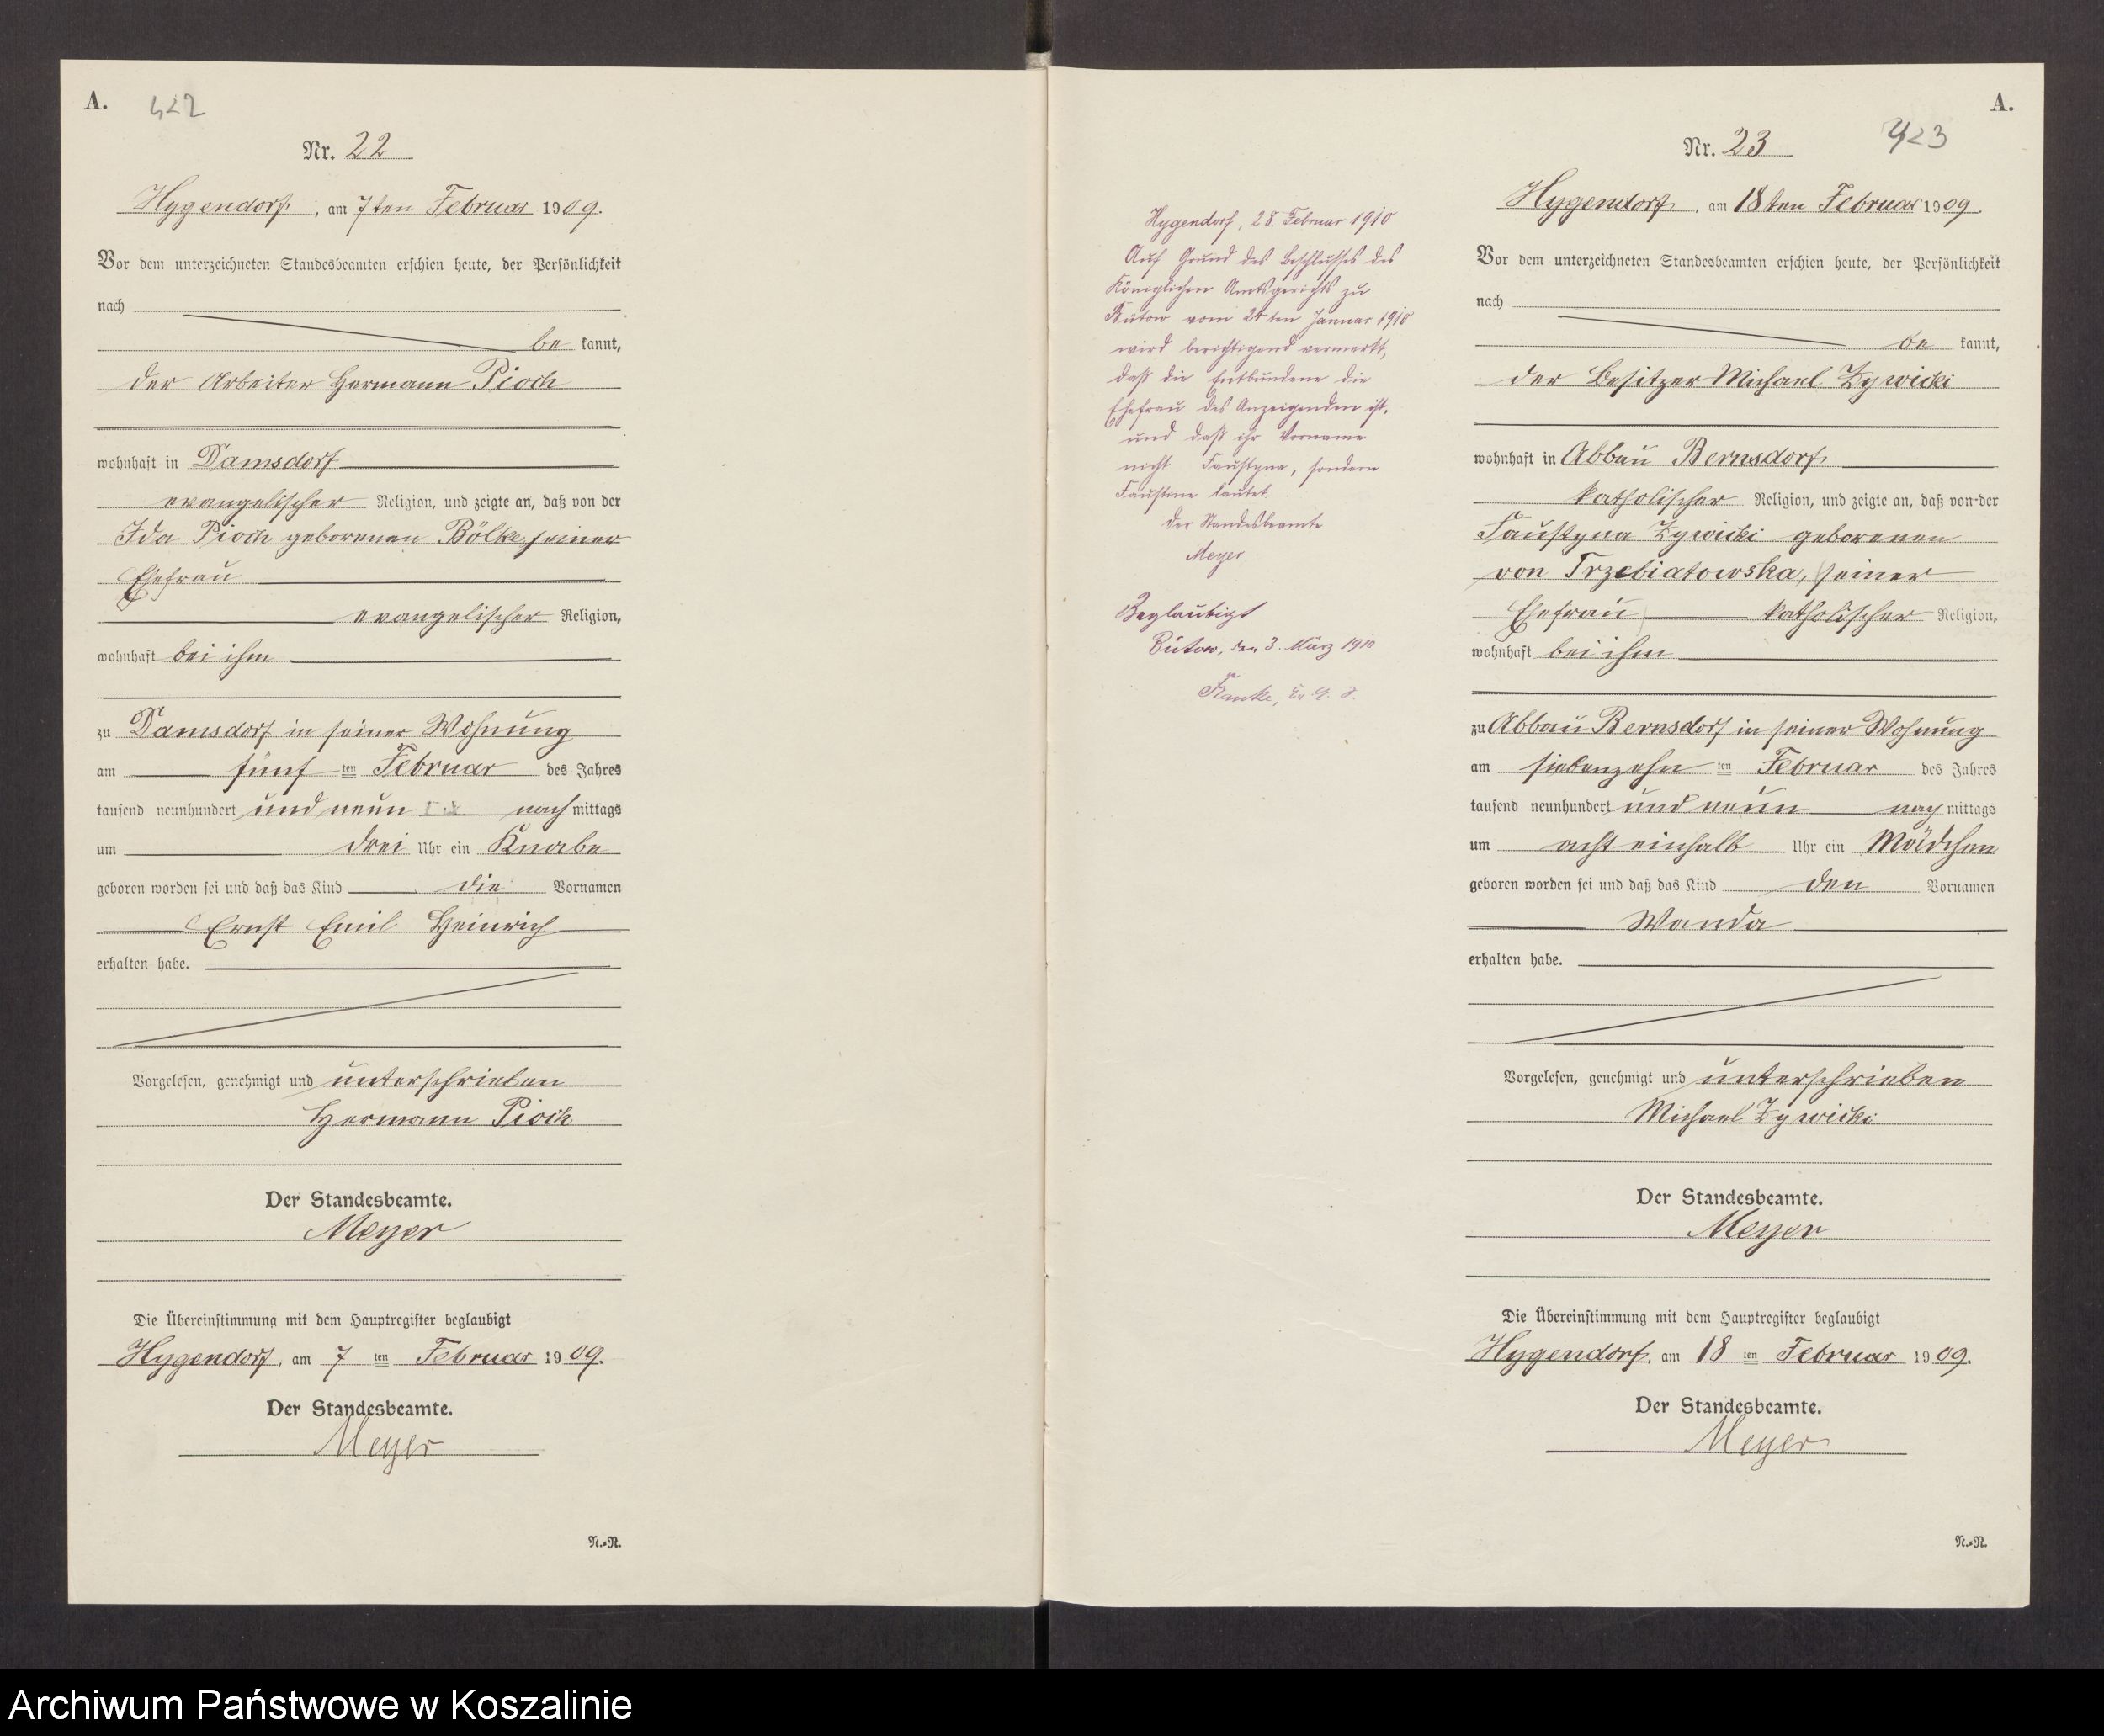 A. 422
Nr. 22
Hygendorf, am 7ten Februar 1909.
Vor dem unterzeichneten Standesbeamten erschien heute, der Persönlichkeit
nach
be kannt,
der Arbeiter Hermann Pioch
wohnhaft in Damsdorf
evangelischer Religion, und zeigte an, daß von der
Ida Pioch geborenen Bölke, seiner
Ehefrau
evangelischer Religion,
wohnhaft bei ihm
zu Damsdorf in seiner Wohnung
am fünf ten Februar des Jahres
tausend neunhundert und neun nach mittags
um drei Uhr ein Knabe
geboren worden sei und daß das Kind die Vornamen
Ernst Emil Heinrich
erhalten habe.
Vorgelesen, genehmigt und unterschrieben
Hermann Pioch
Der Standesbeamte.
Meyer
Die Übereinstimmung mit dem Hauptregister beglaubigt
Hygendorf, am 7 ten Februar 1909.
Der Standesbeamte.
Meyer
N.=R.
Hygendorf, 28. Februar 1910
Auf Grund des Beschlusses des
Königlichen Amtsgerichts zu
Bütow vom 24ten Januar 1910
wird berichtigend vermerkt,
daß die Entbundene die
Ehefrau des Anzeigenden ist,
und daß ihr Vorname
nicht Faustyna, sondern
Faustine lautet
Der Standesbeamte
Meyer
Beglaubigt
Bütow, den 3. März 1910
A.
423
Nr. 23
Hygendorf, am 18ten Februar 1909.
Vor dem unterzeichneten Standesbeamten erschien heute, der Persönlichkeit
nach
be kannt,
der Besitzer Michael Zywicki
wohnhaft in Abbau Bernsdorf
katholischer Religion, und zeigte an, daß von der
Faustyna Zywicki geborenen
von Trzebiatowska, seiner
Ehefrau katholischer Religion,
wohnhaft bei ihm
zu Abbau Bernsdorf in seiner Wohnung
am siebenzehn ten Februar des Jahres
tausend neunhundert und neun nach mittags
um acht einhalb Uhr ein Mädchen
geboren worden sei und daß das Kind den Vornamen
Wanda
erhalten habe.
Vorgelesen, genehmigt und unterschrieben
Michael Zywicki
Der Standesbeamte.
Meyer
Die Übereinstimmung mit dem Hauptregister beglaubigt
Hygendorf, am 18 ten Februar 1909.
Der Standesbeamte.
Meyer
N.=R.
Archiwum Państwowe w Koszalinie